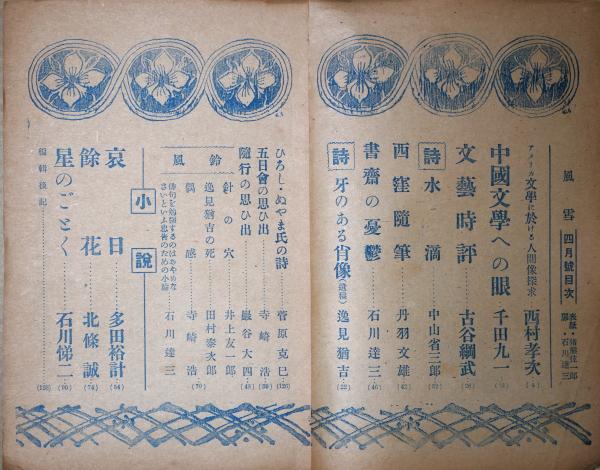 風雪 四月號目次
表紙
扉 石川達三
アメリカ文學に於ける人間像探求 西村孝次
中國文學への眼 千田九一
文藝時評 古谷綱武 (26)
詩 水滴 中山省三郎
西窪隨筆 丹羽文雄 (42)
書齋の憂鬱 石川達三 (46)
詩 牙のある肖像(遺稿) 逸見猶吉 (22)
ひろし・ぬやま氏の詩 菅原克巳 (126)
五日會の思ひ出 寺崎浩
隨行の思ひ出 巖谷大四 (48)
風鈴
針の穴 井上友一郎
逸見猶吉の死 田村泰次郎
偶感 寺崎浩 (70)
俳句を勉強するのはおやめなさいといふ忠告のための小論 石川達三
小說
哀日 多田裕計 (54)
餘花 北條誠 (74)
星のごとく 石川悌二 (90)
編輯後記 (128)